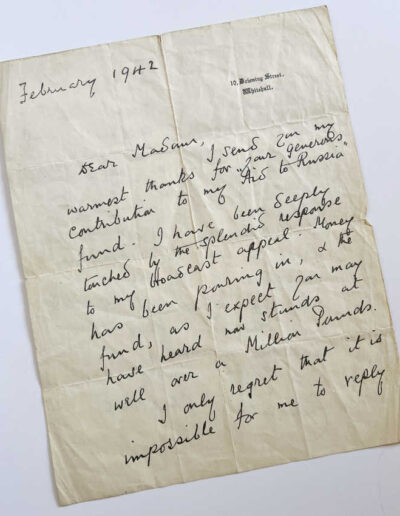 10, Downing Street,
Whitehall.
February 1942
Dear Madam, I send you my
warmest thanks for your generous
contribution to my "Aid to Russia"
fund. I have been deeply
touched by the splendid response
to my broadcast appeal. Money
has been pouring in, & the
fund, as I expect you may
have heard now stands at
well over a Million Pounds.
I only regret that it is
impossible for me to reply